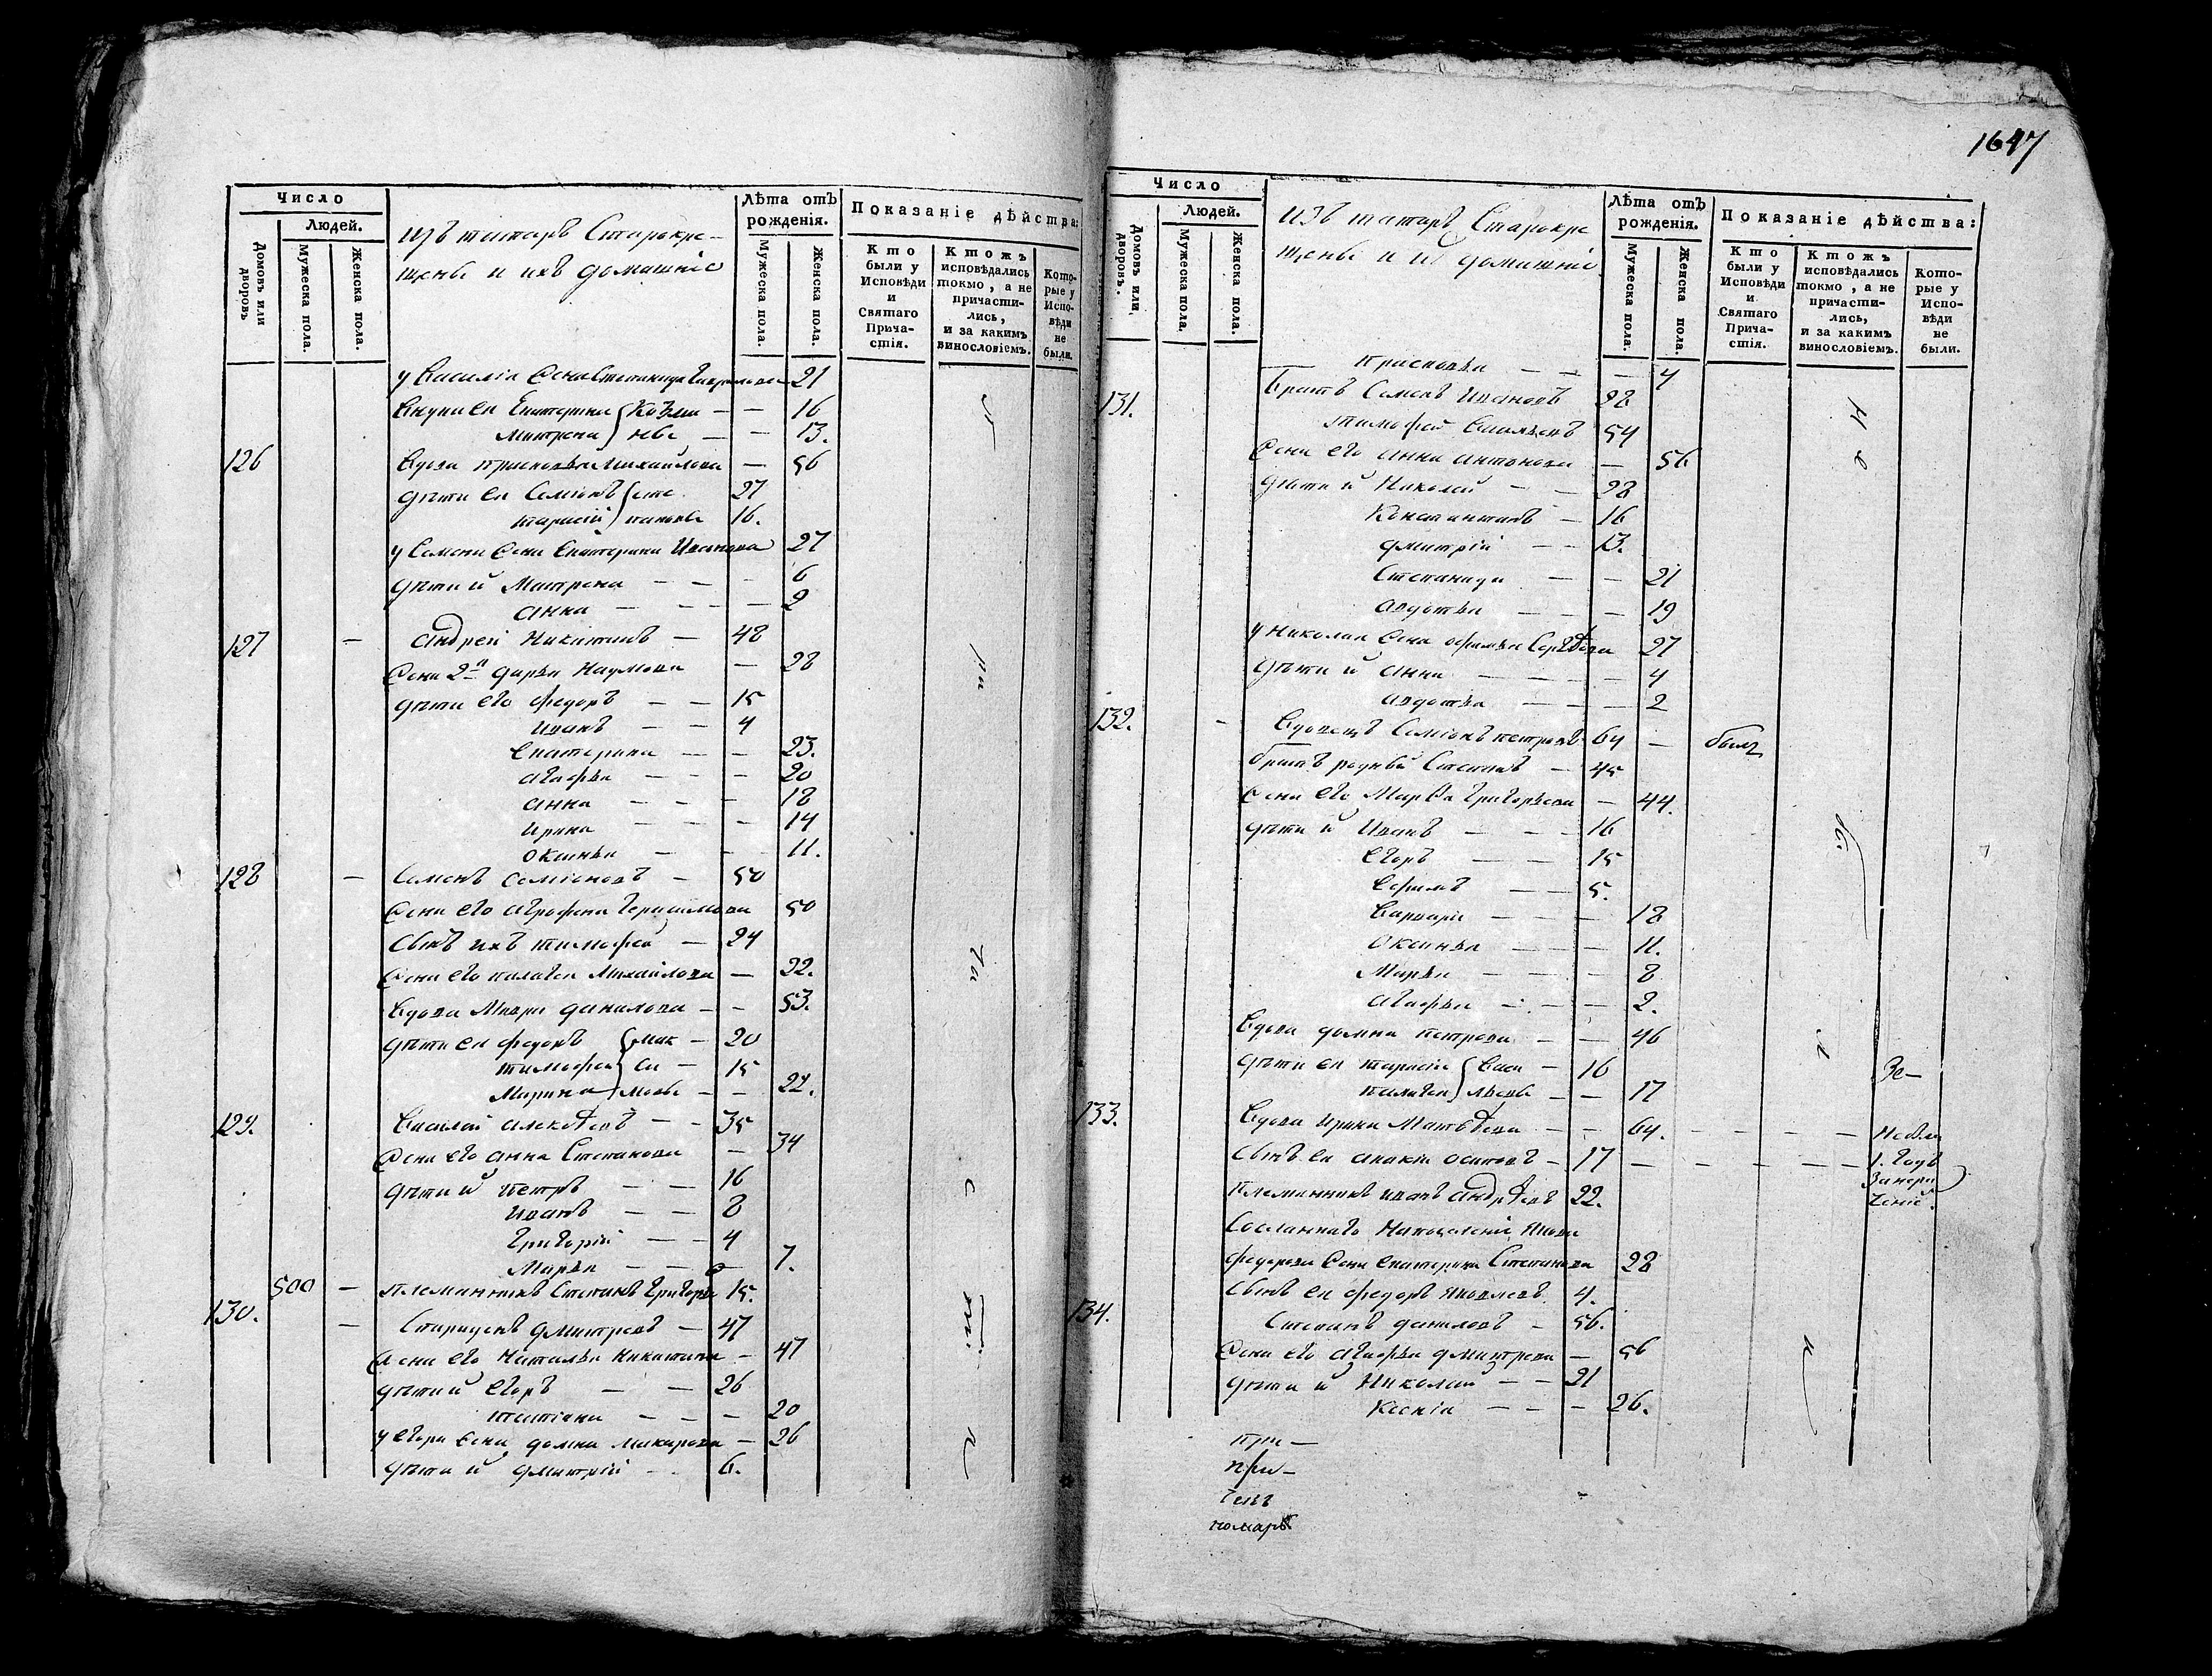 1647
Число
Людей.
Домовъ или дворовъ
Мужеска пола.
Женска пола.
Изъ татаръ Старокре-
щены и ихъ домашніе
Лѣта отъ рожденія.
Мужеска пола.
Женска пола.
Показаніе дѣйства:
Кто были у Исповѣди и Святаго Прича-стія.
Ктожъ исповѣдались токмо, а не причасти-лись, и за какимъ винословіемъ.
Кото-рые у Испо-вѣди не были.
у Василія жена Степанида 21
Внуки ея Екатерина Козми — — 16
Матрена ны — — 13.
126 Вдова Прасковья Михайлова — 56
дѣти ея Семіонъ Сте 27
Тарасій пановы 16.
у Семена жена Екатерина Иванова 27
дѣти и Матрена — — — 6
Анна — — — — 2
127 — Андрей Никитинъ — 48
Жена 2я Дарья Наумова — 28
дѣти его Федоръ — — 15
Иванъ — — 4
Екатерина — — 23.
Агафья — — — 20
Анна — — — 18
Ирина — — — 14
Оксинья — — — 11.
128 — Семенъ Семіоновъ — 50
Жена его Агрофена Герасимова 50
Сынъ ихъ Тимофей — 24
Жена его Палагея Михайлова — 22.
Вдова Мавра Данилова — — 53.
дѣти ея Федоръ Мак — 20
Тимофей си — 15
Марина мовы — — 22.
129. Василей Алексѣевъ — — 35
Жена его Анна Степанова — 34
дѣти и Петръ — — 16
Иванъ — — 8
Григорій — — 4
Марья — — — 7.
500 — Племянникъ Степанъ Григорье 15.
130. — Спиридонъ Дмитревъ — 47
Жена его Наталья Никитина — 47
дѣти и Егоръ — — 26
Татіана — — — 20
у Егора жена Домна Макарова — 26
дѣти и Дмитрій — 6.
Число
Людей.
Домовъ или дворовъ.
Мужеска пола.
Женска пола.
Изъ татаръ Старокре
щены и и домашніе
Лѣта отъ рожденія.
Мужеска пола.
Женска пола.
Показаніе дѣйства:
Кто были у Исповѣди и Святаго Прича-стія.
Ктожъ исповѣдались токмо, а не причасти-лись, и за какимъ винословіемъ.
Кото-рые у Испо-вѣди не были.
Прасковья — — — 4
131. Братъ Семенъ Ивановъ 28
Тимофей 54
Жена его Анна Антонова — 56
дѣти и Николай — — 28
Констант­инъ — 16
Дмитрій — — 13.
Степанида — — 21
Авдотья — — — 19
у Николая жена Офимья Сергѣева 27
дѣти и Анна — — — — 4
Авдотья — — — 2
132. — Вдовецъ Семіонъ Петровъ 64 — былъ
братъ родный Степанъ — 45
жена его Марѳа Григорьева — 44.
дѣти и Иванъ — — — 16
Егоръ — — 15
Ефимъ — — 5.
Варвара — — — 18
Оксинья — — — 11.
Марья — — — — 8
Агафья — — — 2.
Вдова Домна Петрова — — 46
дѣти ея Тарасій Васи — 16 Зе—
Палагея льевы — — 17
133. Вдова Ирина Матвѣева — — 64. — — — —
Сынъ ея осиповъ — 17 — — — — — 1. годъ
Племянникъ Иванъ Андрѣевъ 22.
Сосланнаго Якова
Федорова жена Екатерина Степанова 28
Сынъ ея Федоръ Яковлевъ 4.
134. Степанъ Даниловъ — 56.
Жена его Агафья Дмитрева — 56
дѣти и Николай — — 21
Ксенія — — — 26.
при —